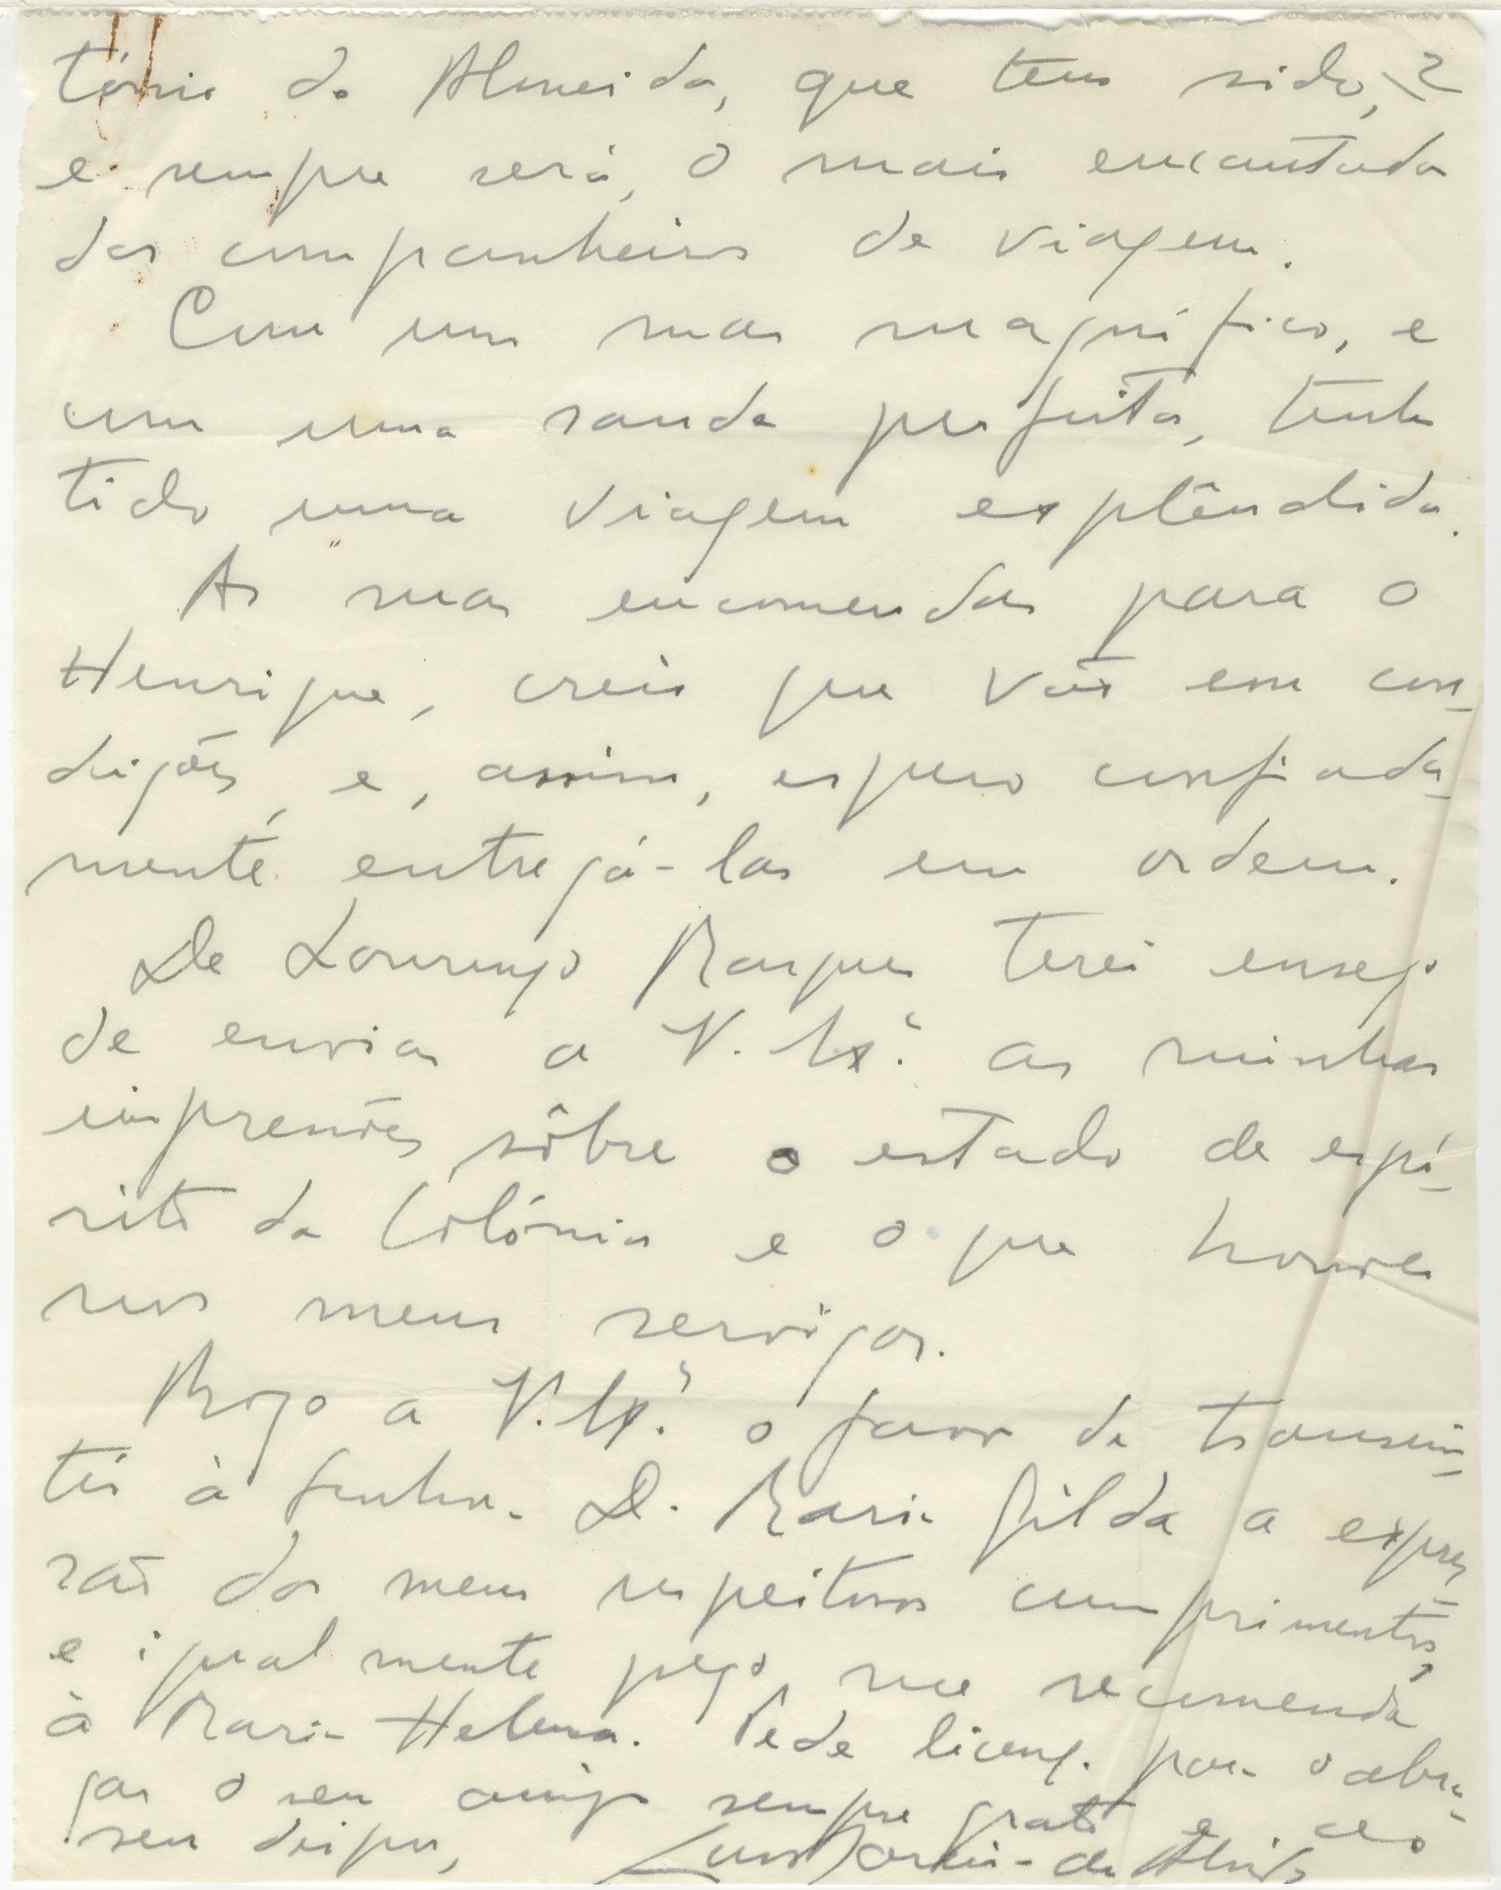 tónio de Almeida, que tem sido, 2
e sempre será, o mais encantador
dos companheiros de viagem.
Com um mar magnífico, e
com uma saude perfeita, tenho
tido uma viagem explêndida.
As suas encomendas para o
Henrique, creio que vão em con-
dições, e, assim, espero confiada-
mente entregá-las em ordem.
De Lourenço Marques terei ensejo
de enviar a V. Ex.ª as minhas
impressões sôbre o estado de espí-
rito da Colónia e o que houver
nos meus serviços.
Rogo a V. Ex.ª o favor de transmi-
tir à Senhora D. Maria Gilda a expres-
são dos meus respeitosos cumprimentos,
e igualmente peço me recomende
à Maria Helena. Pede licença para o abra-
çar o seu amigo sempre grato e
seu